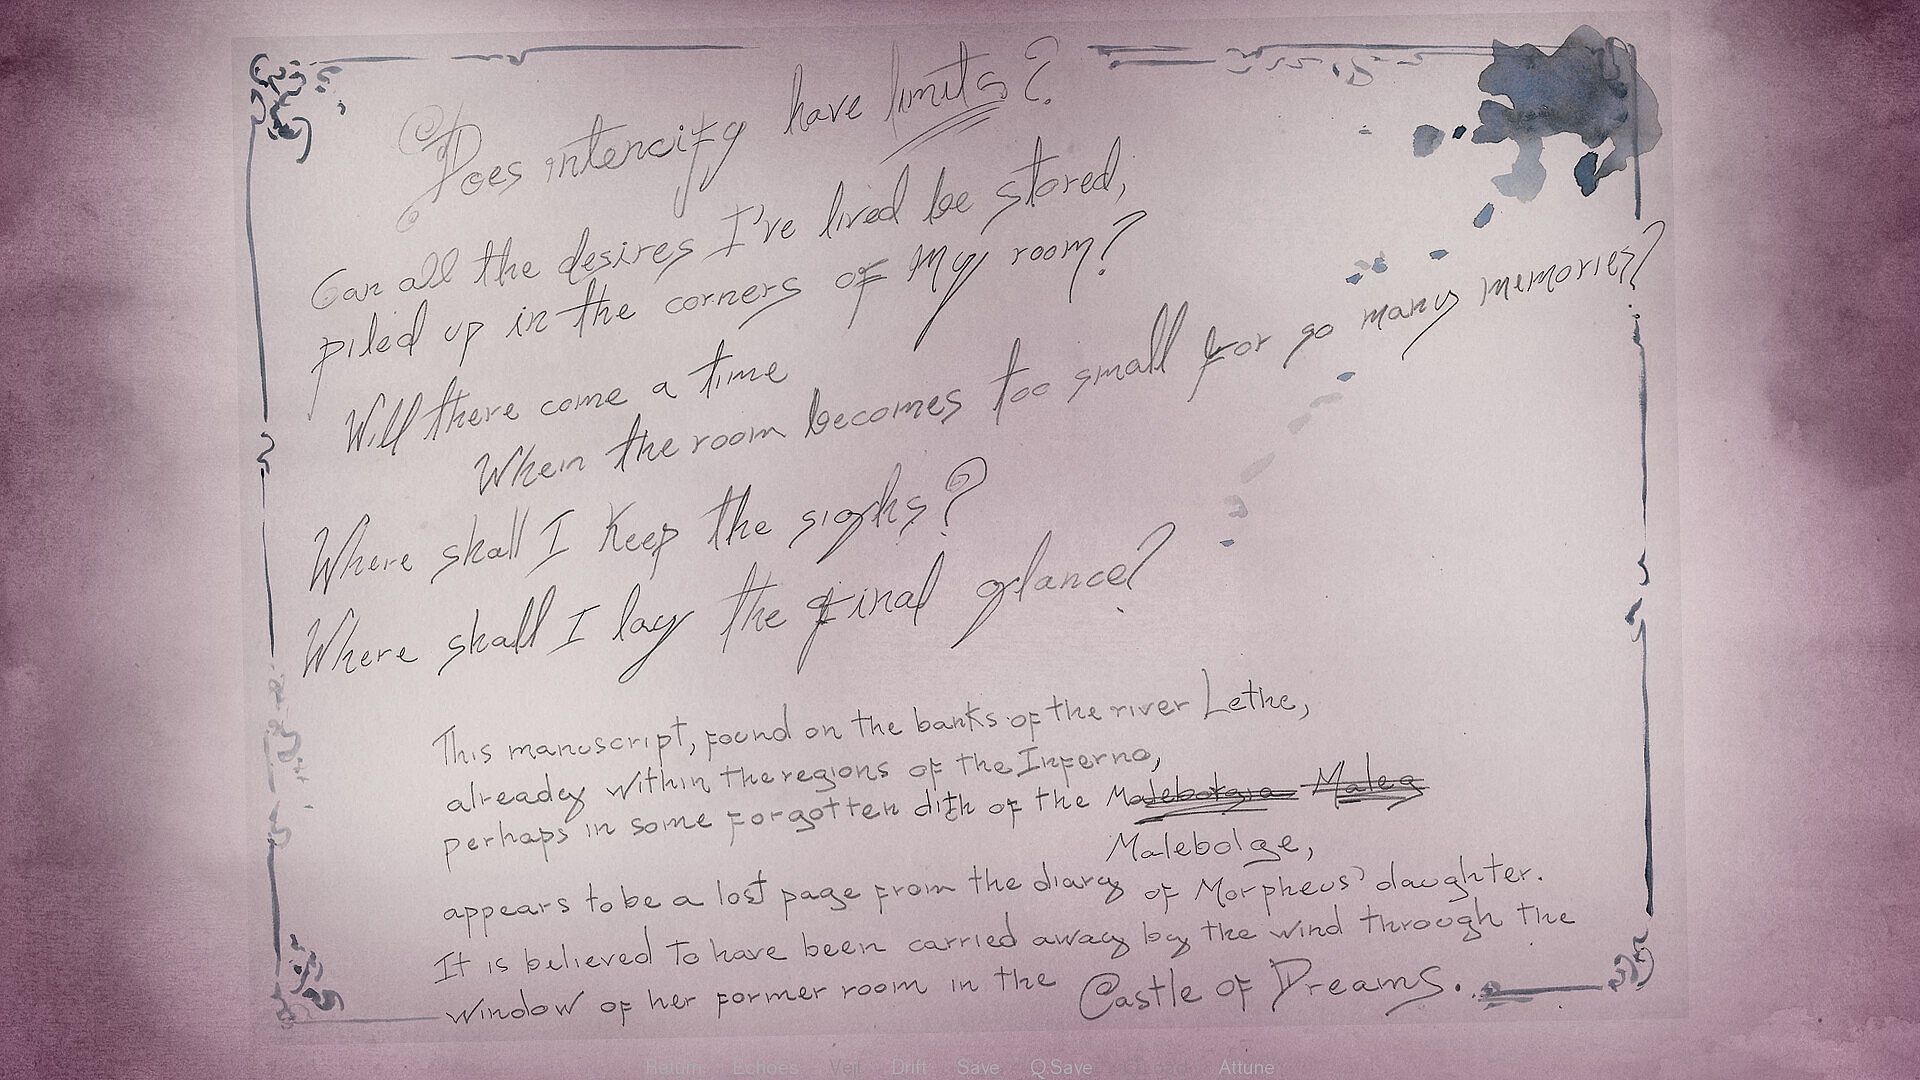 Does intencity have limits?
Can all the desires I've lived be stored,
piled up in the corners of my room?
Will there come a time
When the room becomes too small for so many memories?
Where shall I keep the sighs?
Where shall I lay the final glance?
This manuscript, found on the banks of the river Lethe,
already within the regions of the Inferno,
perhaps in some forgotten dith of the
Malebolge,
appears to be a lost page from the diary of Morpheus' daughter.
It is believed to have been carried away by the wind through the
window of her former room in the Castle of Dreams.
Return Echoes Veil Drift Save Q.Save Q.Load Attune